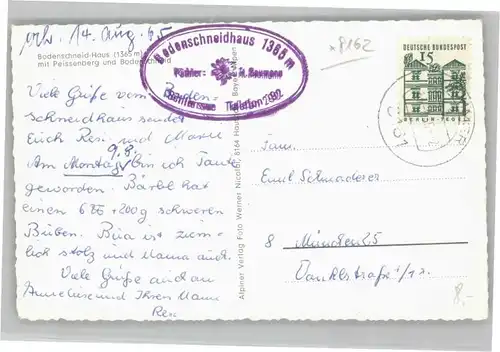 14. Aug. 65
Bodenschneid-Haus (1365 m)
mit Peissenberg und Bodenschneid
Bodenschneidhaus 1365 m
Pächter: M. Baumann
Schliersee Telefon 2892
*8162
DEUTSCHE BUNDESPOST
15
BERLIN-TEGEL
Viele Grüße vom Boden-
schneidhaus sendet
Euch Resi und Mama
9.8.
Am Montag bin ich Tante
geworden. Bärbl hat
einen 6 ℔ + 200 g schweren
Buben. Bin ist ziem-
lich stolz und Mama auch.
Viele Grüße auch an
Anneliese und Ihren Mann
Resi
Alpiner Verlag Foto Werner Nicolai, 8164 Hausham, Bayer. Alpen
Fam.
Emil Schmaderer
8 München 25
Danklstraße
8,-